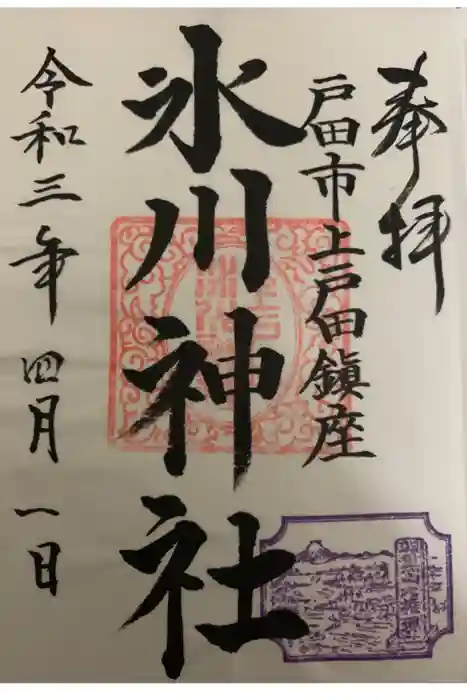 奉拝
戸田市上戸田鎮座
氷川神社
令和三年四月一日